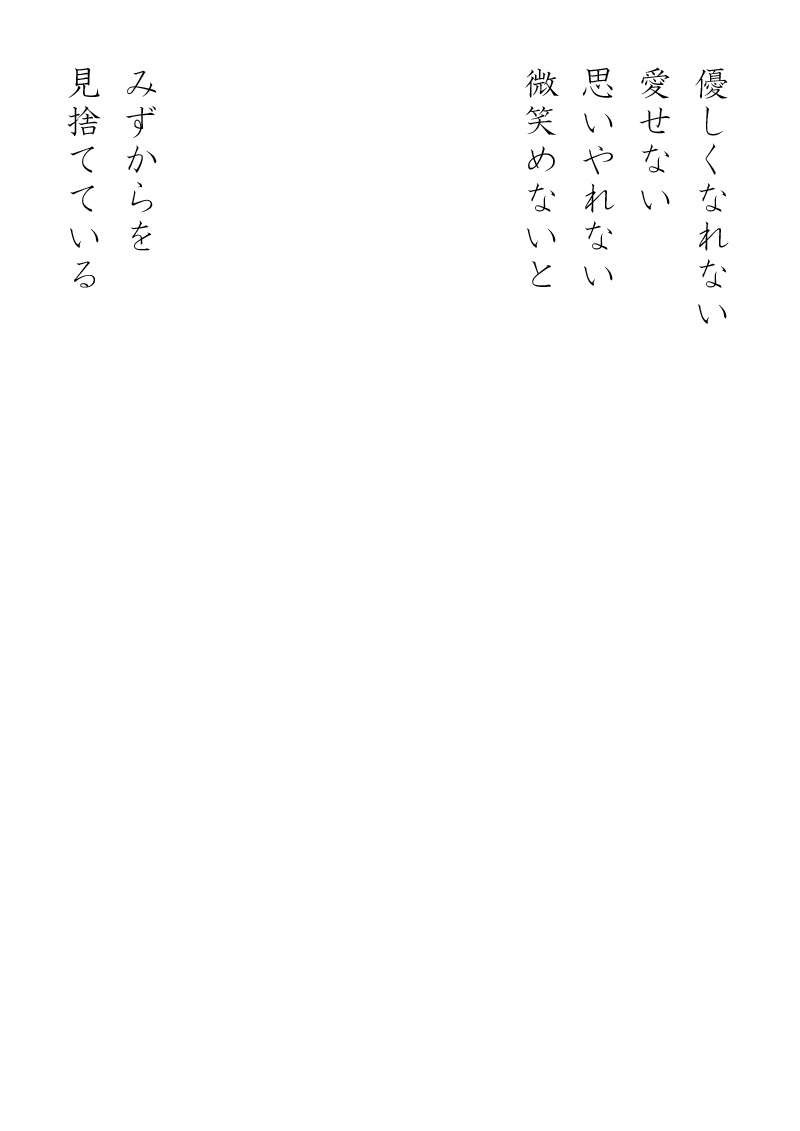 優しくなれない
愛せない
思いやれない
微笑めないと
みずからを
見捨てている